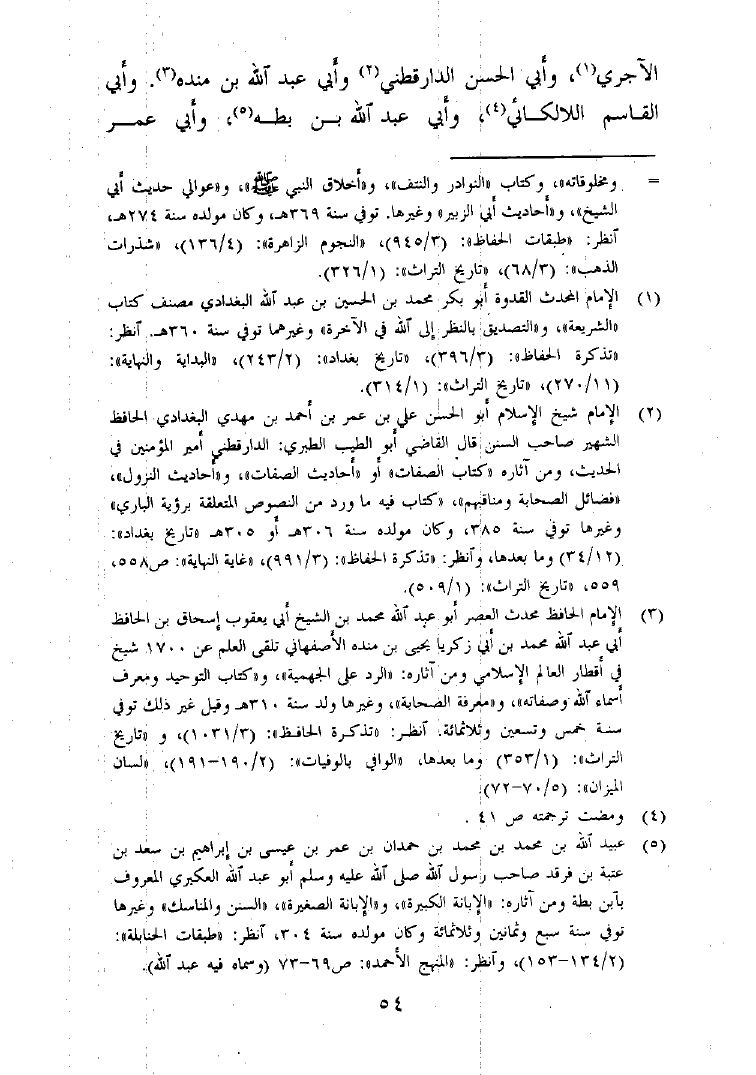 الآجري(١)، وأبي الحسن الدارقطني(٢) وأبي عبد الله بن منده(٣). وأبي
القاسم اللالكائي(٤)، وأبي عبد الله بن بطه(٥)، وأبي عمر
= ومخلوقاته»، وكتاب «النوادر والنتف»، و«أخلاق النبي ﷺ»، و«عوالي حديث أبي
الشيخ»، و«أحاديث أبي الزبير» وغيرها. توفي سنة ٣٦٩هـ، وكان مولده سنة ٢٧٤هـ،
أنظر: «طبقات الحفاظ»: (٩٤٥/٣)، «النجوم الزاهرة»: (١٣٦/٤)، «شذرات
الذهب»: (٦٨/٣)، «تاريخ التراث»: (٣٢٦/١).
(١) الإمام المحدث القدوة أبو بكر محمد بن الحسين بن عبد الله البغدادي مصنف كتاب
«الشريعة»، و«التصديق بالنظر إلى الله في الآخرة» وغيرهما توفي سنة ٣٦٠هـ. أنظر:
«تذكرة الحفاظ»: (٣٩٦/٣)، «تاريخ بغداد»: (٢٤٣/٢)، «البداية والنهاية»:
(٢٧٠/١١)، «تاريخ التراث»: (٣١٤/١).
(٢) الإمام شيخ الإسلام أبو الحسن علي بن عمر بن أحمد بن مهدي البغدادي الحافظ
الشهير صاحب السنن قال القاضي أبو الطيب الطبري: الدارقطني أمير المؤمنين في
الحديث، ومن آثاره «كتاب الصفات» أو «أحاديث الصفات»، و«أحاديث النزول»،
«فضائل الصحابة ومناقبهم»، «كتاب فيه ما ورد من النصوص المتعلقة برؤية الباري»
وغيرها توفي سنة ٣٨٥، وكان مولده سنة ٣٠٦هـ أو ٣٠٥هـ «تاريخ بغداد»:
(٣٤/١٢) وما بعدها، وأنظر: «تذكرة الحفاظ»: (٩٩١/٣)، «غاية النهاية»: ص٥٥٨،
٥٥٩، «تاريخ التراث»: (٥٠٩/١).
(٣) الإمام الحافظ محدث العصر أبو عبد الله محمد بن الشيخ أبي يعقوب إسحاق بن الحافظ
أبي عبد الله محمد بن أبي زكريا يحيى بن منده الأصفهاني تلقى العلم عن ١٧٠٠ شيخ
في أقطار العالم الإسلامي ومن آثاره: «الرد على الجهمية»، و«كتاب التوحيد ومعرف
أسماء الله وصفاته»، و«معرفة الصحابة»، وغيرها ولد سنة ٣١٠هـ وقيل غير ذلك توفي
سنة خمس وتسعين وثلاثمائة. أنظر: «تذكرة الحافظ»: (١٠٣١/٣)، و «تاريخ
التراث»: (٣٥٣/١) وما بعدها، «الوافي بالوفيات»: (١٩٠/٢–١٩١)، «لسان
الميزان»: (٧٠/٥–٧٢)
(٤) ومضت ترجمته ص ٤١ .
(٥) عبيد الله بن محمد بن محمد بن حمدان بن عمر بن عيسى بن إبراهيم بن سعد بن
عتبة بن فرقد صاحب رسول الله صلى الله عليه وسلم أبو عبد الله العكبري المعروف
بآبن بطة ومن آثاره: «الإبانة الكبيرة»، و«الإبانة الصغيرة»، «السنن والمناسك» وغيرها
توفي سنة سبع وثمانين وثلاثمائة وكان مولده سنة ٣٠٤، أنظر: «طبقات الحنابلة»:
(١٣٤/٢–١٥٣)، وأنظر: «المنهج الأحمد»: ص٦٩–٧٣ (وسماه فيه عبد الله).
٥٤